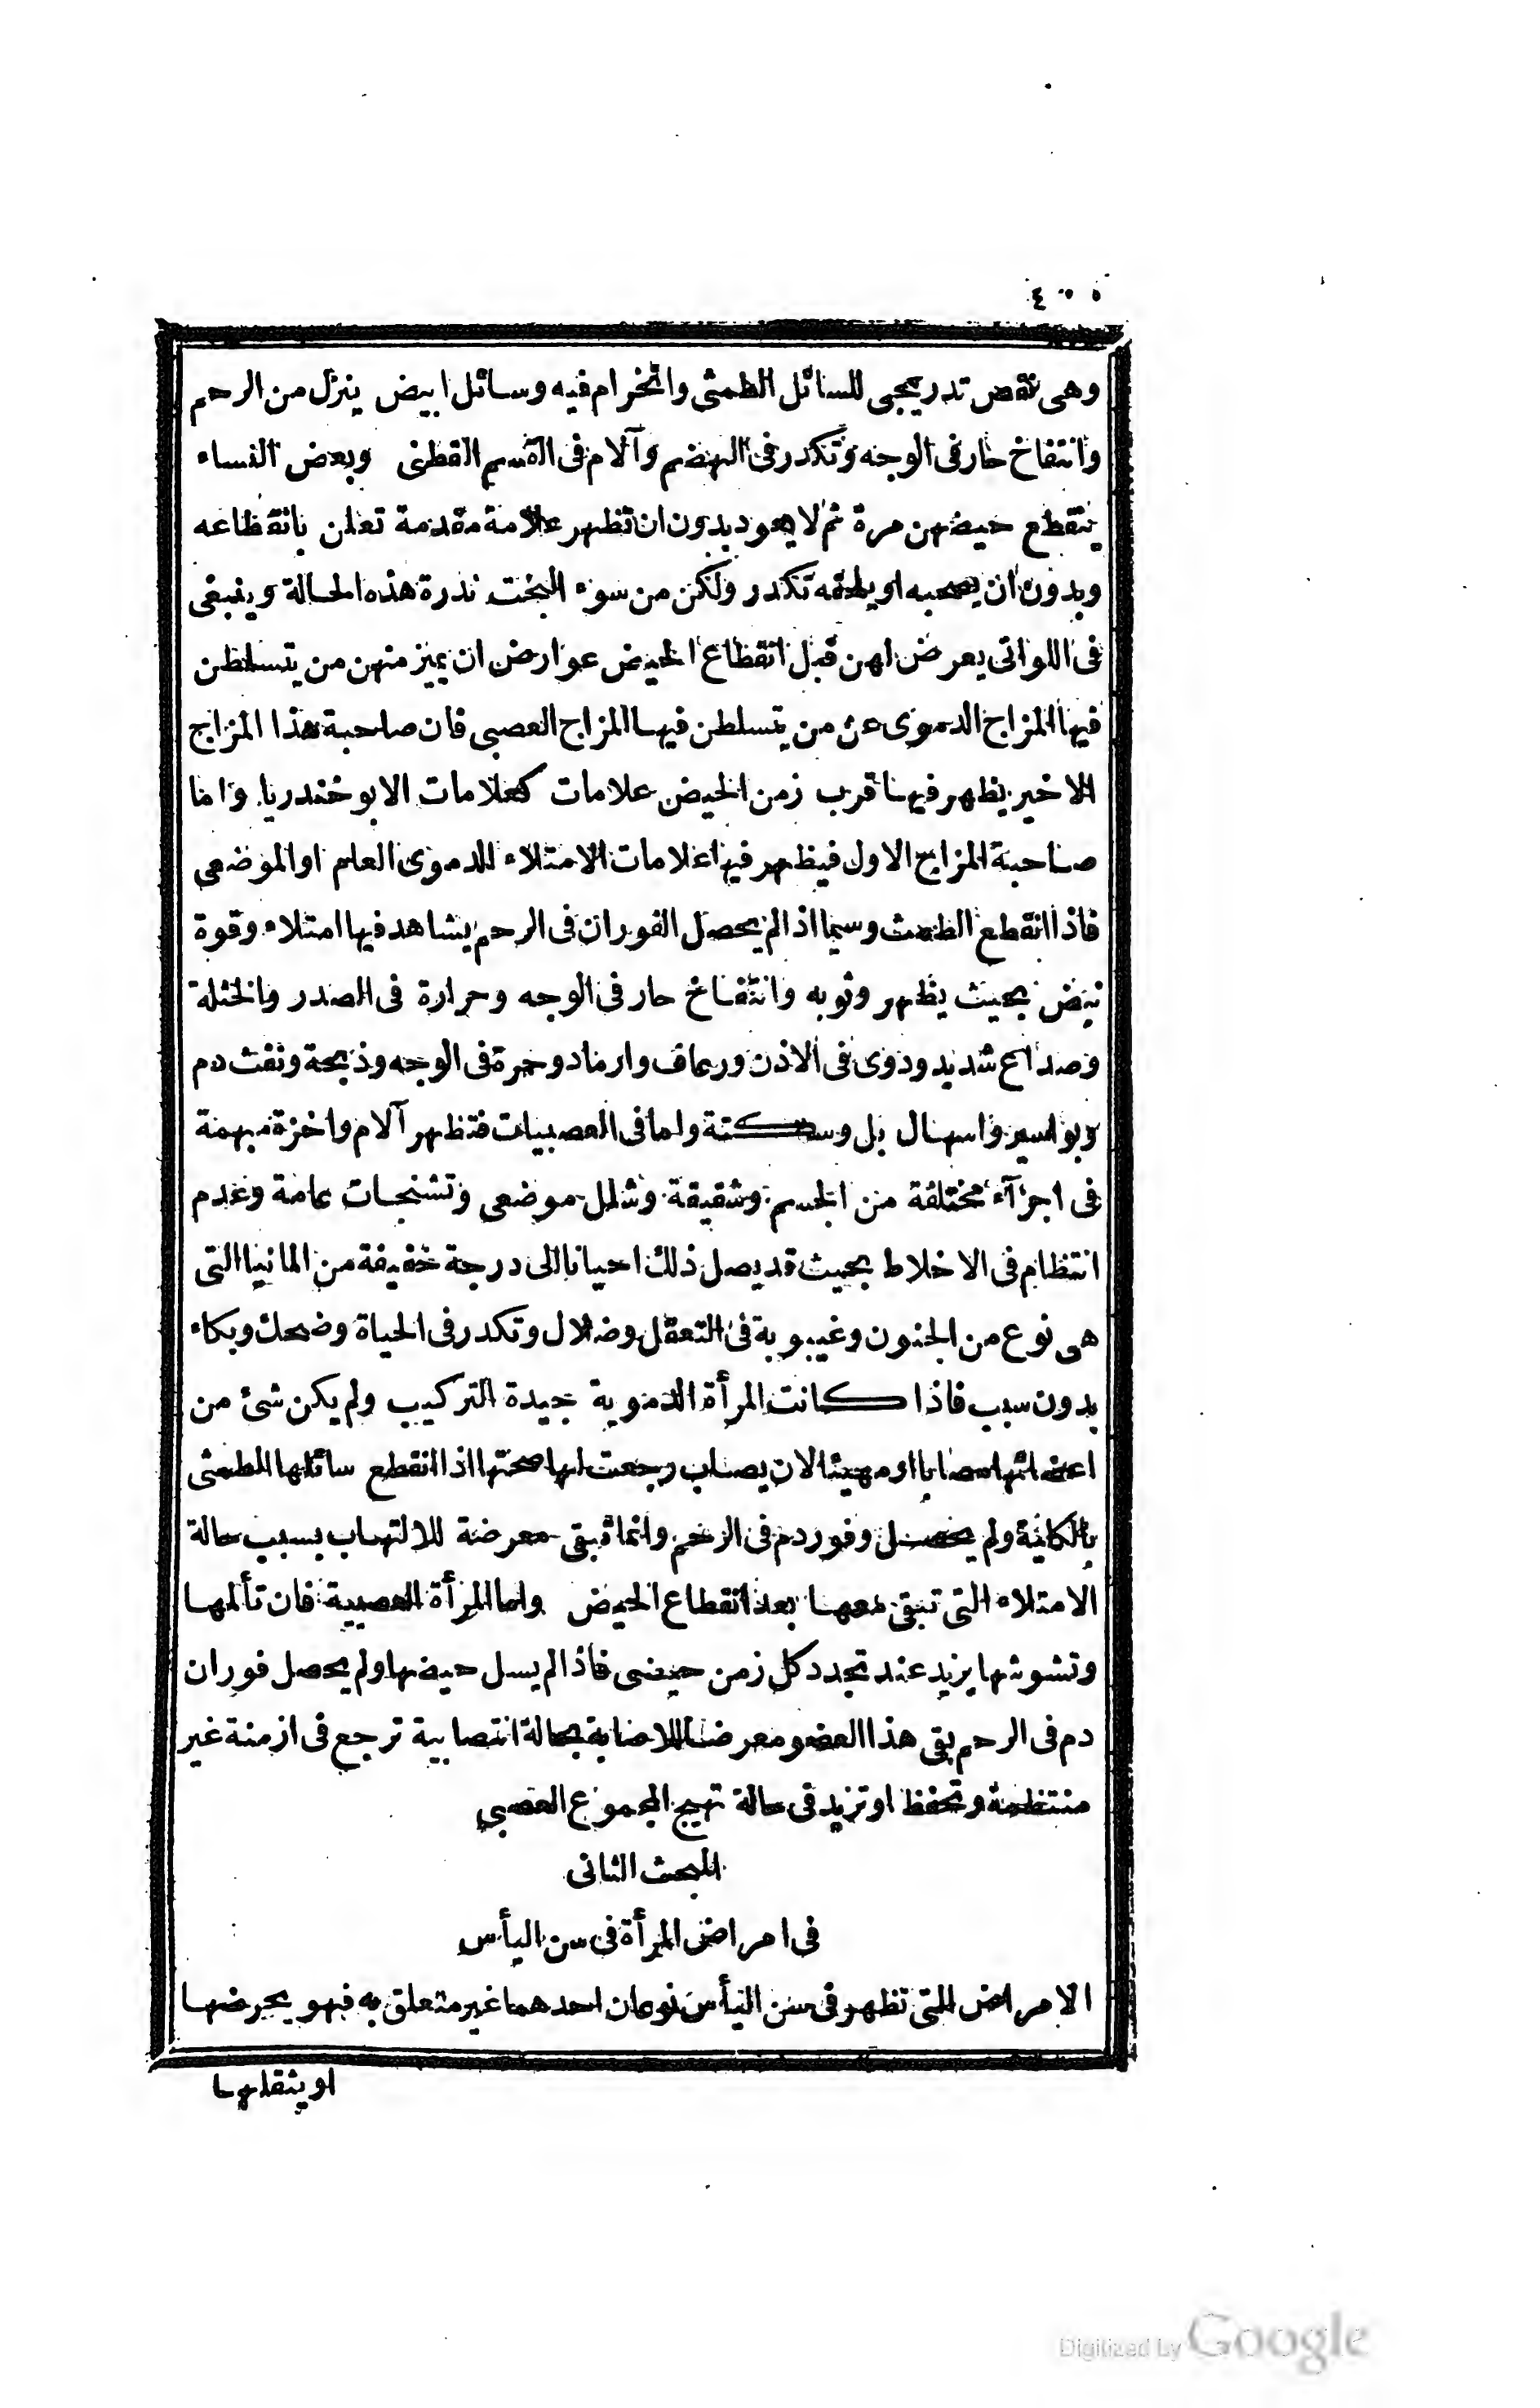 ٤٥٥
وهى نقص تدريجى للسائل الطمثى وانخرام فيه وسائل ابيض ينزل من الرحم
وانتفاخ حار فى الوجه وتكدر فى الهضم وآلام فى القسم القطنى وبعض النساء
ينقطع حيضهن مرة ثم لا يعود بدون ان تظهر علامة مقدمة تعلن بانقطاعه
وبدون ان يصحبه او يلحقه تكدر ولكن من سوء البخت ندرة هذه الحالة وينبغى
فى اللواتى يعرض لهن قبل انقطاع الحيض عوارض ان يميز منهن من يتسلطن
فيها المزاج الدموى عن من يتسلطن فيها المزاج العصبى فان صاحبة هذا المزاج
الاخير يظهر فيها قرب زمن الحيض علامات كعلامات الابوخندريا واما
صاحبة المزاج الاول فيظهر فيها علامات الامتلاء الدموى العام او الموضعى
فاذا انقطع الطمث وسيما اذا لم يحصل الفوران فى الرحم يشاهد فيها امتلاء وقوة
نبض بحيث يظهر وثوبه وانتفاخ حار فى الوجه وحرارة فى الصدر والخثلة
وصداع شديد ودوى فى الاذن ورعاف وارماد وحمرة فى الوجه وذبحة ونفث دم
وبواسير واسهال بل وسكتة واما فى العصبيات فتظهر آلام واخزة مبهمة
فى اجزآء مختلفة من الجسم وشقيقة وشلل موضعى وتشنجات عامة وعدم
انتظام فى الاخلاط بحيث قد يصل ذلك احيانا الى درجة خفيفة من المانيا التى
هى نوع من الجنون وغيبوبة فى التعقل وضلال وتكدر فى الحياة وضحك وبكاء
بدون سبب فاذا كانت المرأة الدموية جيدة التركيب ولم يكن شئ من
اعضائها مصابا او مهيئا لان يصاب رجعت لها صحتها اذا انقطع سائلها الطمثى
بالكلية ولم يحصل وفور دم فى الرحم وانما تبقى معرضة للالتهاب بسبب حالة
الامتلاء التى تبقى معها بعد انقطاع الحيض واما المرأة العصبية فان تألمها
وتشوشها يزيد عند تجدد كل زمن حيضى فاذا لم يسل حيضها ولم يحصل فوران
دم فى الرحم بقى هذا العضو معرضا للاصابة بحالة انتصابية ترجع فى ازمنة غير
منتظمة وتحفظ او تزيد فى حالة تهيج المجموع العصبى
المبحث الثانى
فى امراض المرأة فى سن اليأس
الامراض التى تظهر فى سن اليأس نوعان احدهما غير متعلق به فهو يحرضها
او يثقلها
Digitized by Google